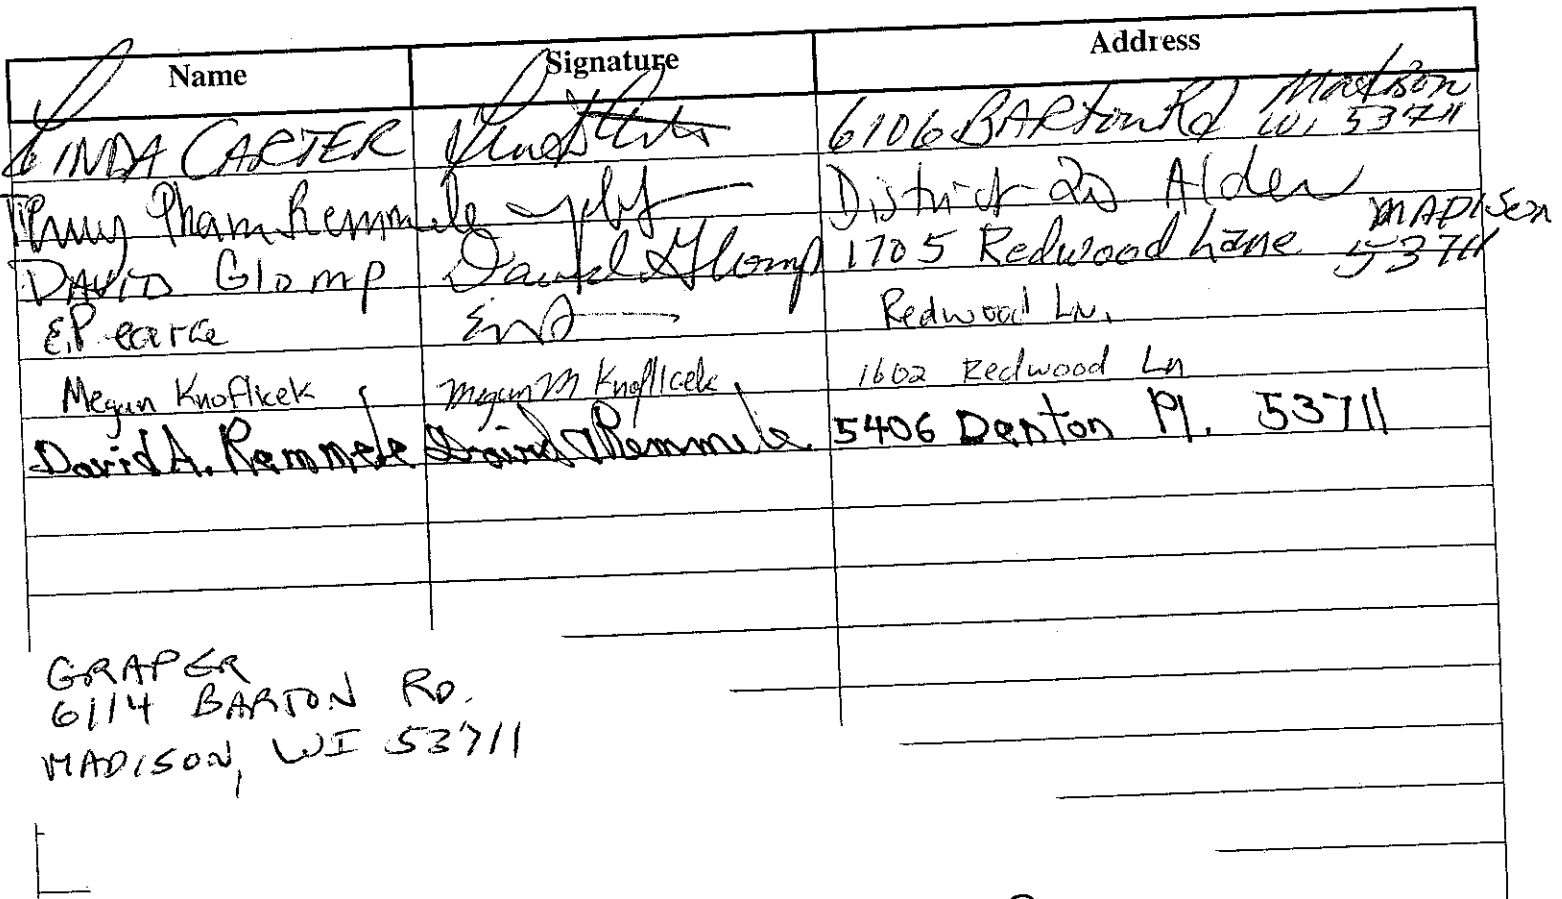 Name Signature Address
LINDA CARTER 6106 BARTON Rd Madison WI 53711
Thuy Pham-Remmele District 20 Alder
DAVID Glomp David Glomp 1705 Redwood Lane MADISON 53711
E. Pearce Redwood Ln.
Megan Knoflicek Megan M Knoflicek 1602 Redwood Ln
David A. Remmele David A Remmele 5406 Denton Pl. 53711
GRAPER
6114 BARTON RD.
MADISON, WI 53711